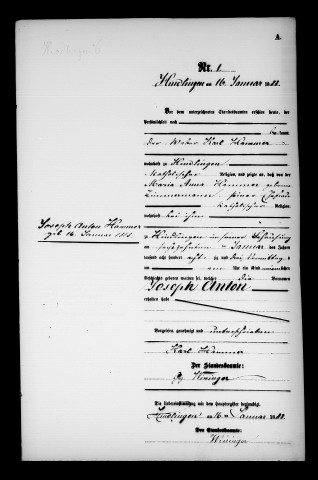 A.
Nr. 1
Hindlingen am 16. Januar 1888.
Vor dem unterzeichneten Standesbeamten erschien heute, der
Persönlichkeit nach
kannt,
der Weber Karl Hammer
wohnhaft zu Hindlingen
katholischer Religion, und zeigte an, daß von der
Maria Anna Hammer geborene
Zimmermann seiner Ehefrau
katholischer Religion,
wohnhaft bei ihm
zu Hindlingen in seiner Behausung
am sechszehnten Januar des Jahres
tausend acht hundert acht zig und acht Vormittag
um ein Kind männlichen
Geschlechts geboren worden sei, welches die Vornamen
Joseph Anton
erhalten habe
Joseph Anton Hammer
geb. 16 Januar 1888
Vorgelesen, genehmigt und unterschrieben
Karl Hammer
Der Standesbeamte:
Weninger
Die Uebereinstimmung mit dem Hauptregister beglaubigt.
Hindlingen am 16 ten Januar 1888.
Der Standesbeamte:
Weninger